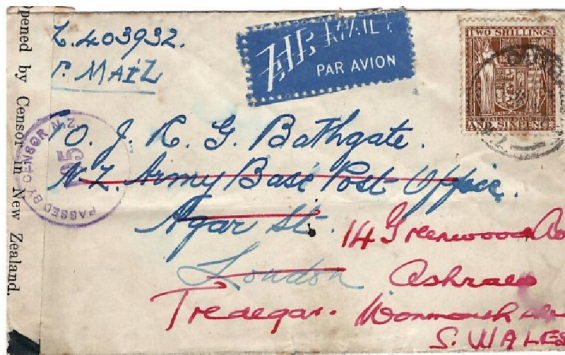 Opened by Censor in New Zealand.
Z.403932.
P. MAIL
AIR MAIL
PAR AVION
TWO SHILLINGS
AND SIXPENCE
PASSED BY CENSOR N.Z.
O. J. R. G. Bathgate.
N.Z. Army Base Post Office.
Agar St.
London
14 Greenwood
Tredegar. Monmouth
S. WALES